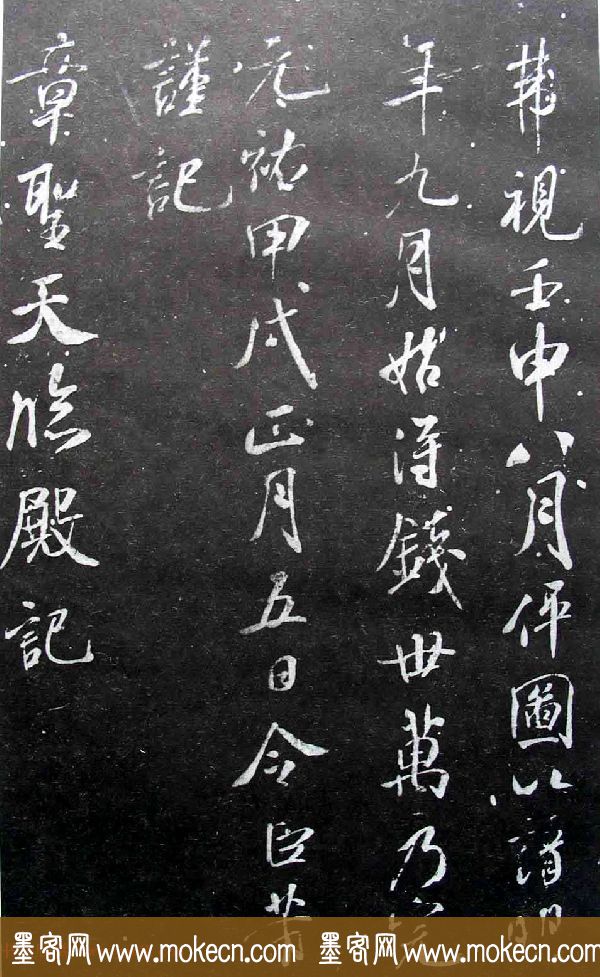 芾視壬申八月伻圖以請明
年九月始得錢丗萬乃
元祐甲戌正月五日令臣芾
謹記
章聖天臨殿記
墨客网 www.mokecn.com 墨客网 www.mokecn.com